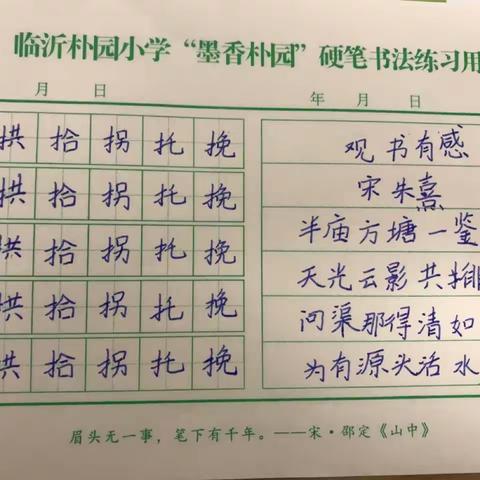 临沂朴园小学“墨香朴园”硬笔书法练习用
月 日
年 月 日
拱 拾 拐 托 挽
拱 拾 拐 托 挽
拱 拾 拐 托 挽
拱 拾 拐 托 挽
拱 拾 拐 托 挽
观书有感
宋 朱熹
半庙方塘一鉴
天光云影共排
问渠那得清如
为有源头活水
眉头无一事，笔下有千年。——宋·邵定《山中》